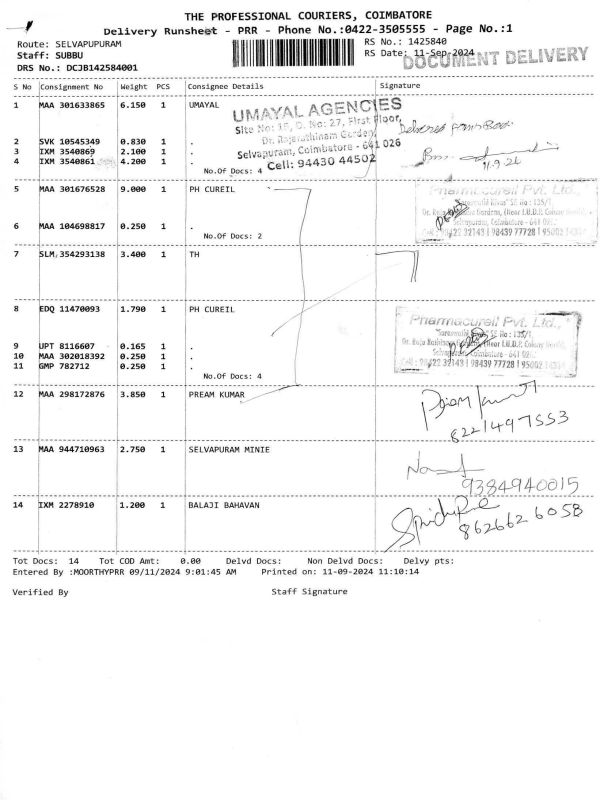 THE PROFESSIONAL COURIERS, COIMBATORE
Delivery Runsheet - PRR - Phone No.:0422-3505555 - Page No.:1
Route: SELVAPUPURAM
RS No.: 1425840
Staff: SUBBU
RS Date: 11-Sep-2024
DOCUMENT DELIVERY
DRS No.: DCJB142584001
S No Consignment No Weight PCS Consignee Details Signature
1 MAA 301633865 6.150 1 UMAYAL
UMAYAL AGENCIES
Site No: 15, D. No: 27, First Floor,
Dr. Rajarathinam Garden,
Selvapuram, Coimbatore - 641 026
Cell: 94430 44502
Delivered
11.9.24
2 SVK 10545349 0.830 1 .
3 IXM 3540869 2.100 1 .
4 IXM 3540861 4.200 1 .
No.Of Docs: 4
5 MAA 301676528 9.000 1 PH CUREIL
Pharmacureil Pvt. Ltd.,
6 MAA 104698817 0.250 1 .
No.Of Docs: 2
7 SLM 354293138 3.400 1 TH
8 EDQ 11470093 1.790 1 PH CUREIL
Pharmacureil Pvt. Ltd.,
9 UPT 8116607 0.165 1 .
10 MAA 302018392 0.250 1 .
11 GMP 782712 0.250 1 .
No.Of Docs: 4
12 MAA 298172876 3.850 1 PREAM KUMAR
8221497553
13 MAA 944710963 2.750 1 SELVAPURAM MINIE
9384940015
14 IXM 2278910 1.200 1 BALAJI BAHAVAN
8626626058
Tot Docs: 14 Tot COD Amt: 0.00 Delvd Docs: Non Delvd Docs: Delvy pts:
Entered By :MOORTHYPRR 09/11/2024 9:01:45 AM Printed on: 11-09-2024 11:10:14
Verified By Staff Signature